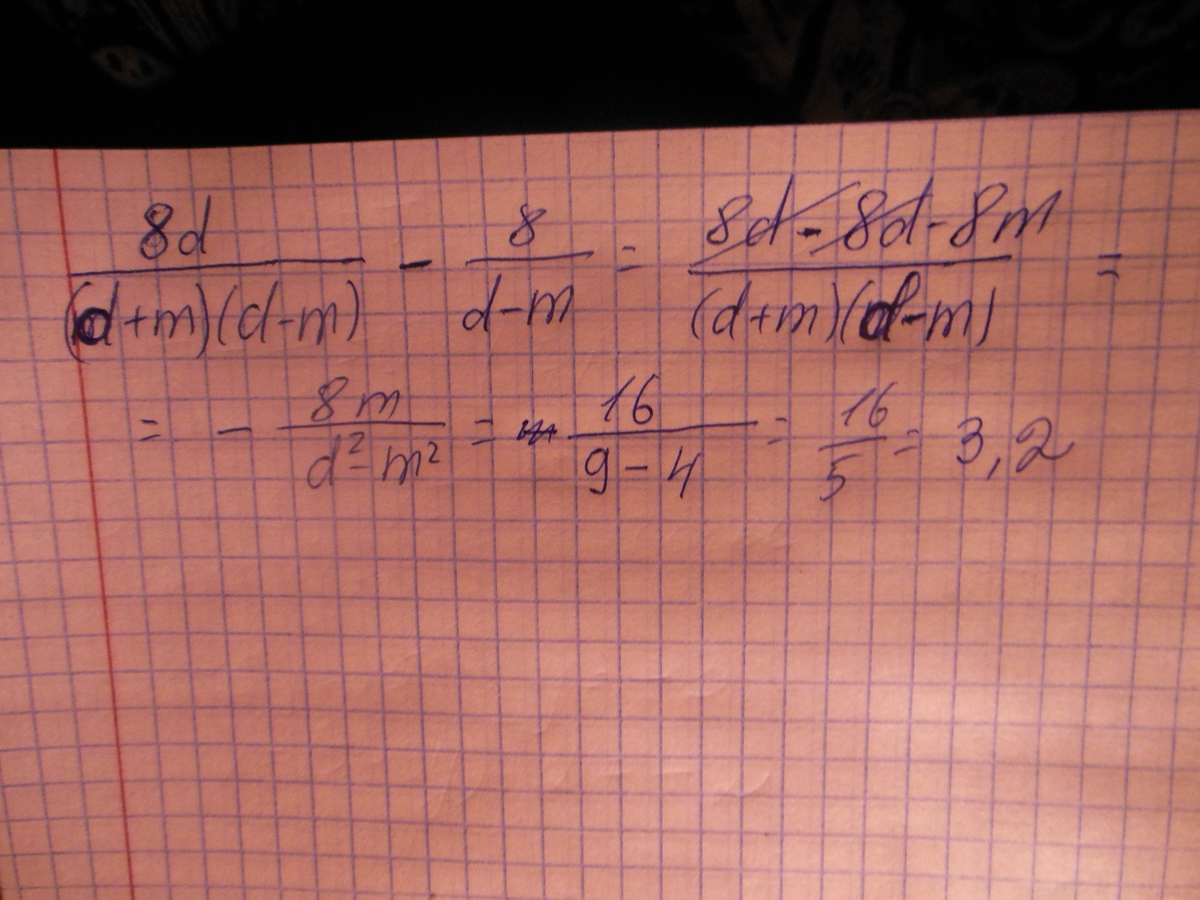 8d/((d+m)(d-m)) - 8/(d-m) = (8d - 8d - 8m)/((d+m)(d-m)) =
= - 8m/(d²-m²) = 16/(9-4) = 16/5 = 3,2